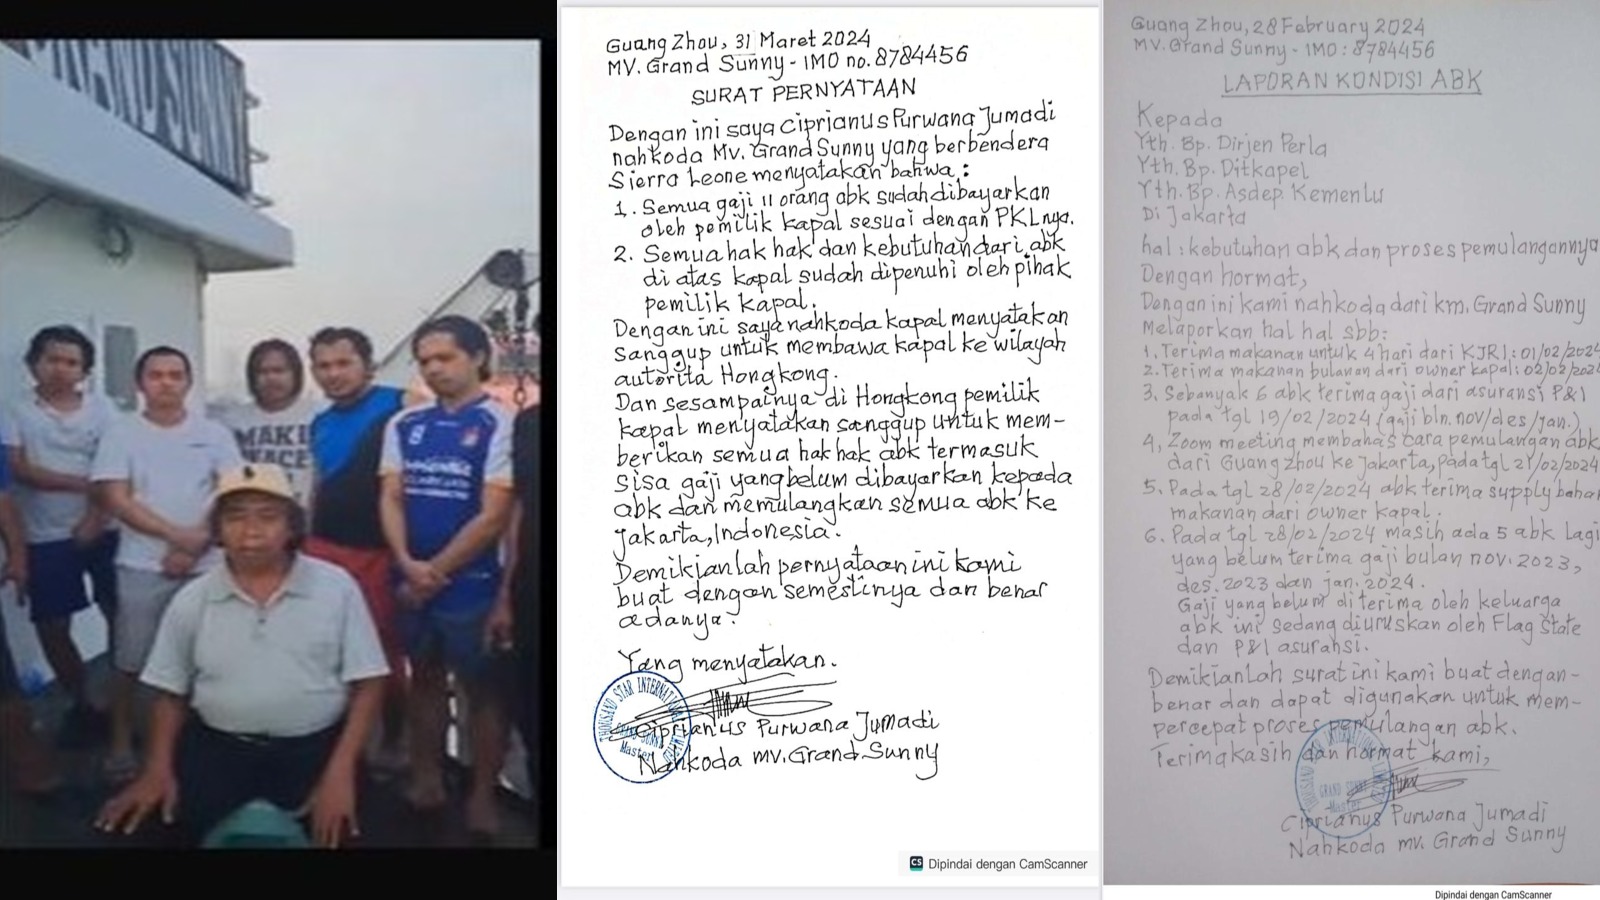 MAKE
PEACE
Guang Zhou, 31 Maret 2024
MV. Grand Sunny - IMO no. 8784456
SURAT PERNYATAAN
Dengan ini saya Ciprianus Purwana Jumadi
nahkoda Mv. Grand Sunny yang berbendera
Sierra Leone menyatakan bahwa :
1. Semua gaji 11 orang abk sudah dibayarkan
oleh pemilik kapal sesuai dengan PKL nya.
2. Semua hak hak dan kebutuhan dari abk
di atas kapal sudah dipenuhi oleh pihak
pemilik kapal.
Dengan ini saya nahkoda kapal menyatakan
sanggup untuk membawa kapal ke wilayah
autorita Hongkong.
Dan sesampainya di Hongkong pemilik
kapal menyatakan sanggup untuk mem-
berikan semua hak hak abk termasuk
sisa gaji yang belum dibayarkan kepada
abk dan memulangkan semua abk ke
Jakarta, Indonesia.
Demikianlah pernyataan ini kami
buat dengan semestinya dan benar
adanya.
Yang menyatakan.
THOUSAND STAR INTERNATIONAL
GRAND SUNNY
Master
Ciprianus Purwana Jumadi
Nahkoda mv. Grand Sunny
CS Dipindai dengan CamScanner
Guang Zhou, 28 February 2024
MV. Grand Sunny - IMO : 8784456
LAPORAN KONDISI ABK
Kepada
Yth. Bp. Dirjen Perla
Yth. Bp. Ditkapel
Yth. Bp. Asdep Kemenlu
Di Jakarta
hal : kebutuhan abk dan proses pemulangannya
Dengan hormat,
Dengan ini kami nahkoda dari km. Grand Sunny
Melaporkan hal hal sbb:
1. Terima makanan untuk 4 hari dari KJRI : 01/02/2024
2. Terima makanan bulanan dari owner kapal : 02/02/2024
3. Sebanyak 6 abk terima gaji dari asuransi P&I
pada tgl 19/02/2024 (gaji bln. nov/des/jan.)
4, Zoom meeting membahas cara pemulangan abk
dari Guang Zhou ke Jakarta, pada tgl 21/02/2024
5. Pada tgl 28/02/2024 abk terima supply bahan
makanan dari owner kapal.
6. Pada tgl 28/02/2024 masih ada 5 abk lagi
yang belum terima gaji bulan nov. 2023,
des. 2023 dan jan. 2024.
Gaji yang belum di terima oleh keluarga
abk ini sedang diuruskan oleh Flag State
dan P&I asuransi.
Demikianlah surat ini kami buat dengan-
benar dan dapat digunakan untuk mem-
percepat proses pemulangan abk.
Terimakasih dan hormat kami,
GRAND SUNNY
Master
Ciprianus Purwana Jumadi
Nahkoda mv. Grand Sunny
Dipindai dengan CamScanner